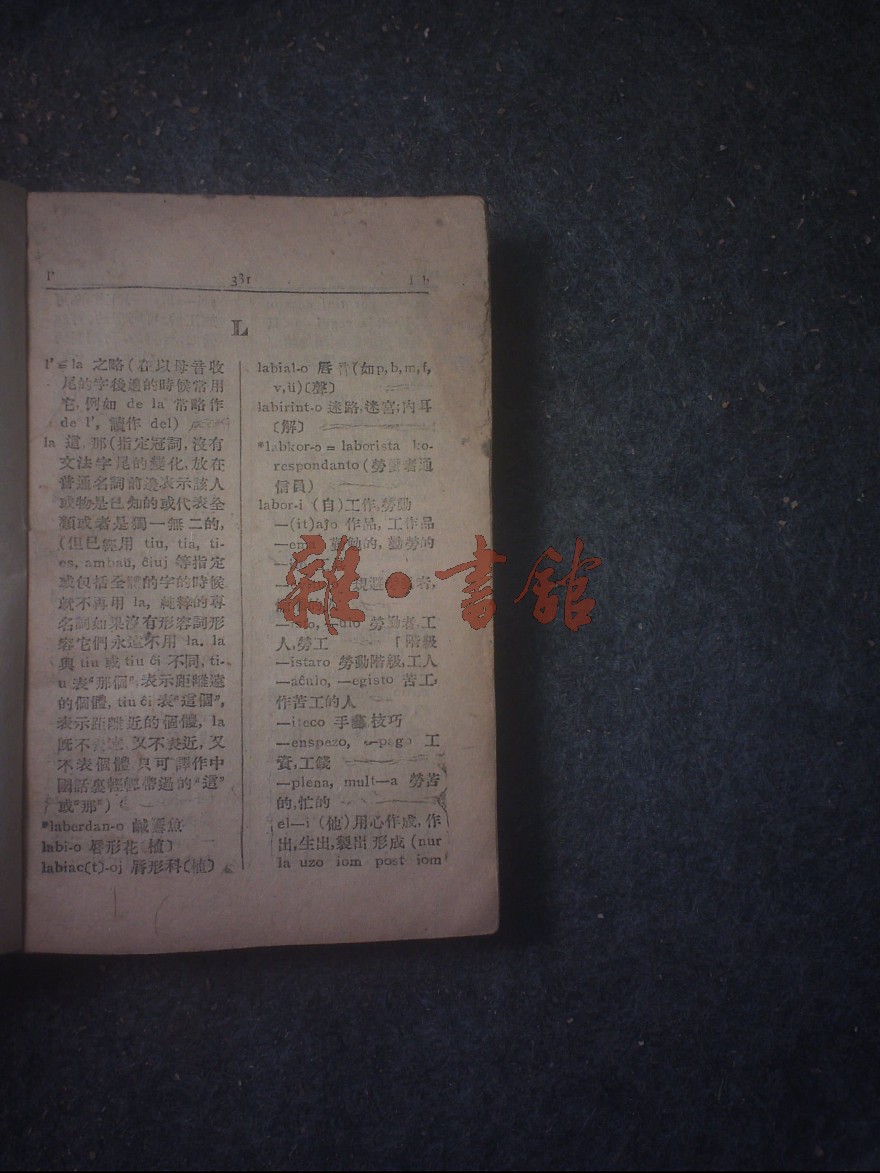 l'
381
L
l' = la 之略(在以母音收
尾的字後邊的時候常用
它, 例如 de la 常略作
de l', 讀作 del)
la 這, 那(指定冠詞, 沒有
文法字尾的變化, 放在
普通名詞前邊表示該人
或物是已知的或代表全
類或者是獨一無二的,
(但已經用 tiu, tia, ti-
es, ambaŭ, ĉiuj 等指定
或包括全體的字的時候
就不再用 la, 純粹的專
名詞如果沒有形容詞形
容它們永遠不用 la. la
與 tiu 或 tiu ĉi 不同, ti-
u 表“那個”, 表示距離遠
的個體, tiu ĉi 表“這個”,
表示距離近的個體, la
既不表遠, 又不表近, 又
不表個體, 只可譯作中
國話裏輕輕帶過的“這”
或“那”)
*laberdan-o 鹹鱈魚
labi-o 唇形花〔植〕
labiac(t)-oj 唇形科〔植〕
labial-o 唇音(如p, b, m, f,
v, ŭ)〔聲〕
labirint-o 迷路, 迷宮; 內耳
〔解〕
*labkor-o = laborista ko-
respondanto (勞動者通
信員)
labor-i (自)工作, 勞動
—(it)aĵo 作品, 工作品
—ema 勤勉的, 勤勞的
—ulo 勞動者, 工
人, 勞工 「階級
—istaro 勞動階級, 工人
—aĉulo, —egisto 苦工,
作苦工的人
—iteco 手藝, 技巧
—enspezo, —pago 工
資, 工錢
—plena, mult—a 勞苦
的, 忙的
el—i (他)用心作成, 作
出, 生出, 製出 形成 (nur
la uzo iom post iom
雜·書館